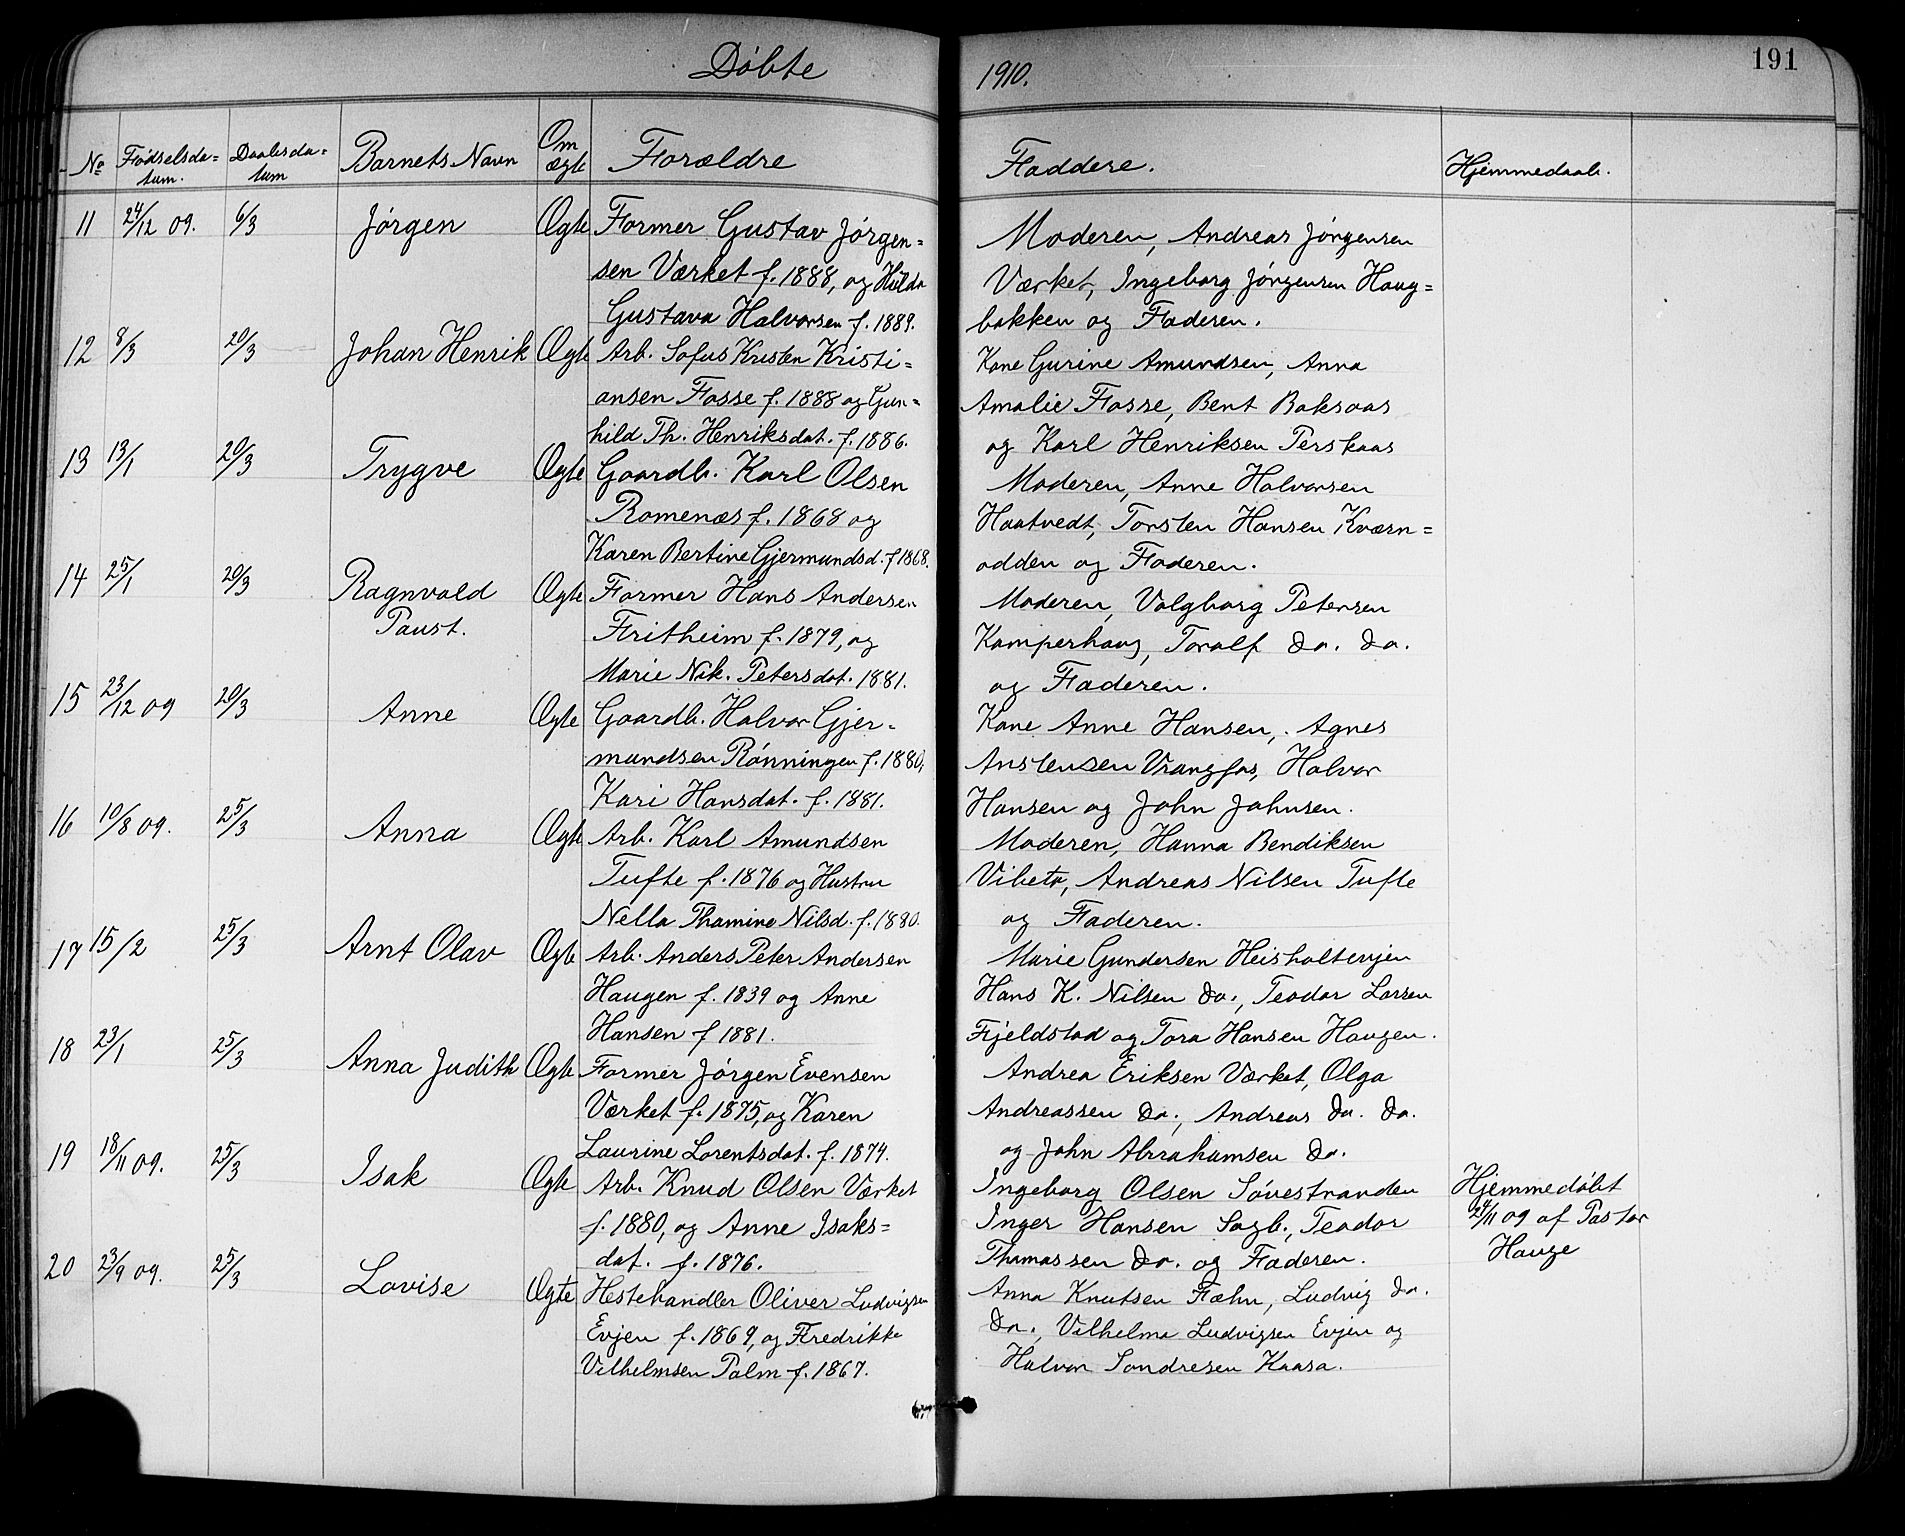 Døbte 1910. 191
No Fødselsda= tum. Daabsda= tum Barnets Navn Om ægte Forældre Faddere. Hjemmedaab.
11 24/12 09. 6/3 Jørgen Ægte Former Gustav Jørgen=
sen Værket f. 1888, og Hilda
Gustava Halvorsen f. 1889.
Moderen, Andreas Jørgensen
Værket, Ingeborg Jørgensen Haug=
bakken og Faderen.
12 8/3 20/3 Johan Henrik Ægte Arb. Sofus Kristen Kristi=
ansen Fosse f. 1888 og Gun=
hild Th. Henriksdat. f. 1886.
Kone Gurine Amundsen, Anna
Amalie Fosse, Bent Baksaas
og Karl Henriksen Perskaas
13 13/1 20/3 Trygve Ægte Gaardb. Karl Olsen
Romenæs f. 1868 og
Karen Bertine Gjermundsd. f 1868.
Moderen, Anne Halvorsen
Haatvedt, Torsten Hansen Kværn=
odden og Faderen.
14 25/1 20/3 Ragnvald
Paust.
Ægte Former Hans Andersen
Fritheim f. 1879, og
Marie Nik. Petersdat. 1881.
Moderen, Valgborg Petersen
Kamperhaug, Toralf do. do.
og Faderen.
15 23/12 09 20/3 Anne Ægte Gaardb. Halvor Gjer=
mundsen Rønningen f. 1880,
Kari Hansdat. f. 1881.
Kone Anne Hansen, Agnes
Anstensen Vrangfos, Halvor
Hansen og John Johnsen.
16 10/8 09. 25/3 Anna Ægte Arb. Karl Amundsen
Tufte f. 1876 og Hustru
Nella Thomine Nilsd. f. 1880.
Moderen, Hanna Bendiksen
Vibeto, Andreas Nilsen Tufte
og Faderen.
17 15/2 25/3 Arnt Olav Ægte Arb. Anders Peter Andersen
Haugen f. 1839 og Anne
Hansen f 1881.
Marie Gundersen Heisholtevjen
Hans K. Nilsen do., Teodor Larsen
Fjeldstad og Tora Hansen Haugen.
18 23/1 25/3 Anna Judith Ægte Former Jørgen Evensen
Værket f. 1875, og Karen
Laurine Lorentsdat. f. 1874.
Andrea Eriksen Værket, Olga
Andreassen do., Andreas do. do.
og John Abrahamsen do.
19 18/11 09. 25/3 Isak Ægte Arb. Knud Olsen Værket
f. 1880, og Anne Isaks=
dat. f. 1876.
Ingeborg Olsen Søvestranden
Inger Hansen Sagb., Teodor
Thomassen do. og Faderen.
Hjemmedøbt
24/11 09 af Pastor
Hauge
20 23/9 09. 25/3 Lovise Ægte Hestehandler Oliver Ludvigsen
Evjen f. 1869, og Fredrikke
Vilhelmsen Palm f. 1867.
Anna Knutsen Fæhn, Ludvig do.
do., Vilhelma Ludvigsen Evjen og
Halvor Sondresen Kaasa.